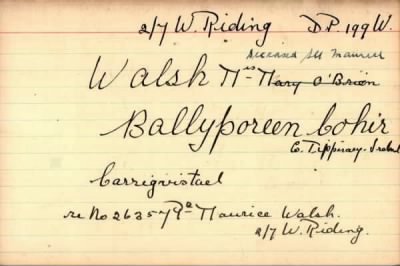 2/7 W. Riding D.P. 199 W.
deceased see Maurice
Walsh Mrs Mary O'Brien
Ballyporeen Cohir
C. Tipperary. Ireland
Carrigvistael
re No 26357 Pte Maurice Walsh.
2/7 W. Riding.